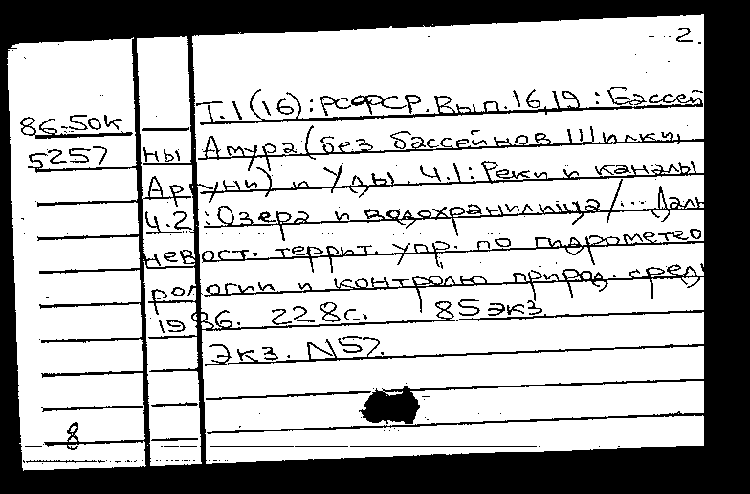 2.
Т.1(16):РСФСР.Вып.16,19:Бассей
86-50к
5257
ны Амура(без бассейнов Шилки,
Аргуни) и Уды Ч.1:Реки и каналы
Ч.2:Озера и водохранилища/...Даль
невост. террит. упр. по гидрометео
рологии и контролю природ. среды
1986. 228с. 85экз.
Экз. N57.
8